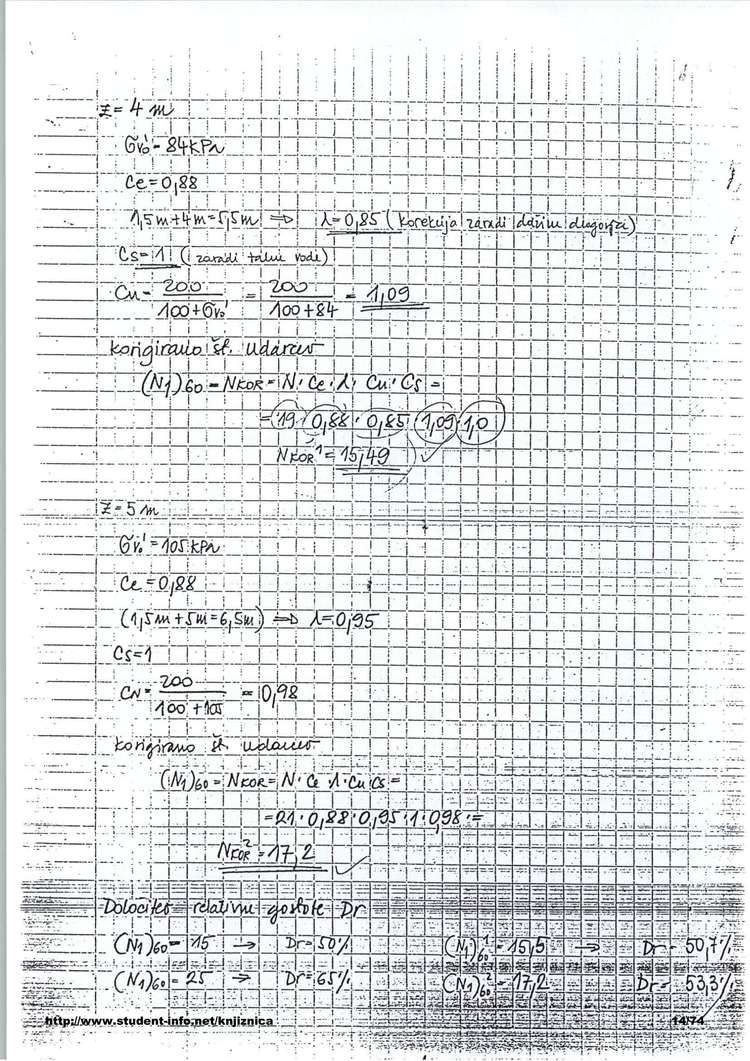 z = 4 m
σv₀' = 84 kPa
Ce = 0,88
1,5m + 4m = 5,5m ⇒ λ = 0,85 (korekcija zaradi dolžin drogovja)
Cs = 1 (zaradi talne vode)
Cu = 200 / (100 + σv₀') = 200 / (100 + 84) = 1,09
korigirano št. udarcev
(N1)60 = NKOR = N · Ce · λ · Cu · Cs =
= 19 · 0,88 · 0,85 · 1,09 · 1,0
NKOR¹ = 15,49 ✓
z = 5 m
σv₀' = 105 kPa
Ce = 0,88
(1,5m + 5m = 6,5m) ⇒ λ = 0,95
Cs = 1
CN = 200 / (100 + 105) = 0,98
korigirano št. udarcev
(N1)60 = NKOR = N · Ce · λ · Cu · Cs =
= 21 · 0,88 · 0,95 · 1 · 0,98 · =
NKOR² = 17,2 ✓
Določitev relativne gostote Dr
(N1)60 = 15 → Dr = 50% (N1)60¹ = 15,5 → Dr = 50,7%
(N1)60 = 25 → Dr = 65% (N1)60² = 17,2 Dr = 53,3%
http://www.student-info.net/knjiznica 14/74